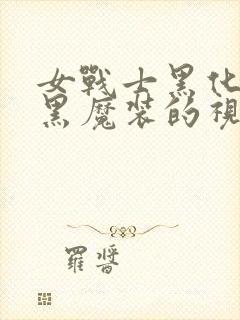 女戰士黑化
黑魔裝的視
羅晉